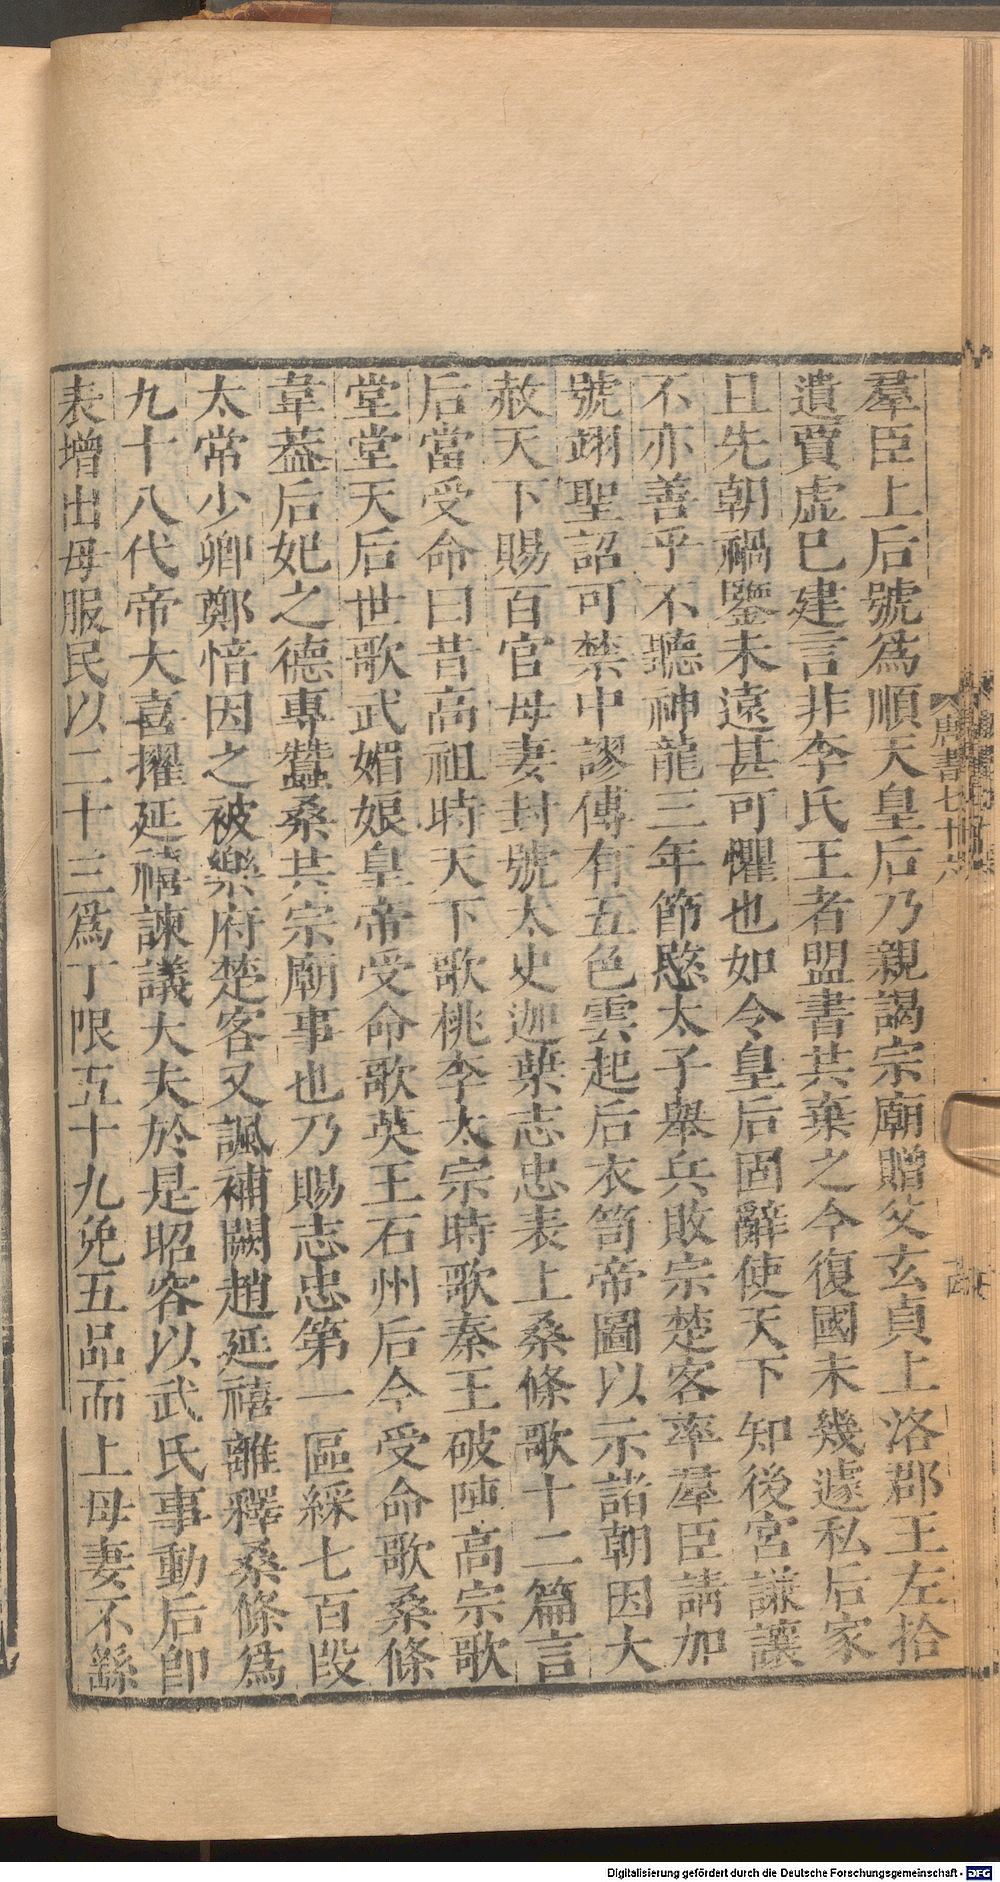 羣臣上后號爲順天皇后乃親謁宗廟贈父玄貞上洛郡王左拾
遺賈虛巳建言非李氏王者盟書共棄之今復國未幾遽私后家
且先朝禍鑒未遠甚可懼也如令皇后固辭使天下知後宮謙讓
不亦善乎不聽神龍三年節愍太子舉兵敗宗楚客率羣臣請加
號翊聖詔可禁中謬傳有五色雲起后衣笥帝圖以示諸朝因大
赦天下賜百官母妻封號太史迦葉志忠表上桑條歌十二篇言
后當受命曰昔高祖時天下歌桃李太宗時歌秦王破陣高宗歌
堂堂天后世歌武媚娘皇帝受命歌英王石州后今受命歌桑條
韋葢后妃之德專蠶桑共宗廟事也乃賜志忠第一區綵七百段
太常少卿鄭愔因之被樂府楚客又諷補闕趙延禧離釋桑條爲
九十八代帝大喜擢延禧諫議大夫於是昭容以武氏事動后卽
表增出母服民以二十三爲丁限五十九免五品而上母妻不繇
唐書七十六